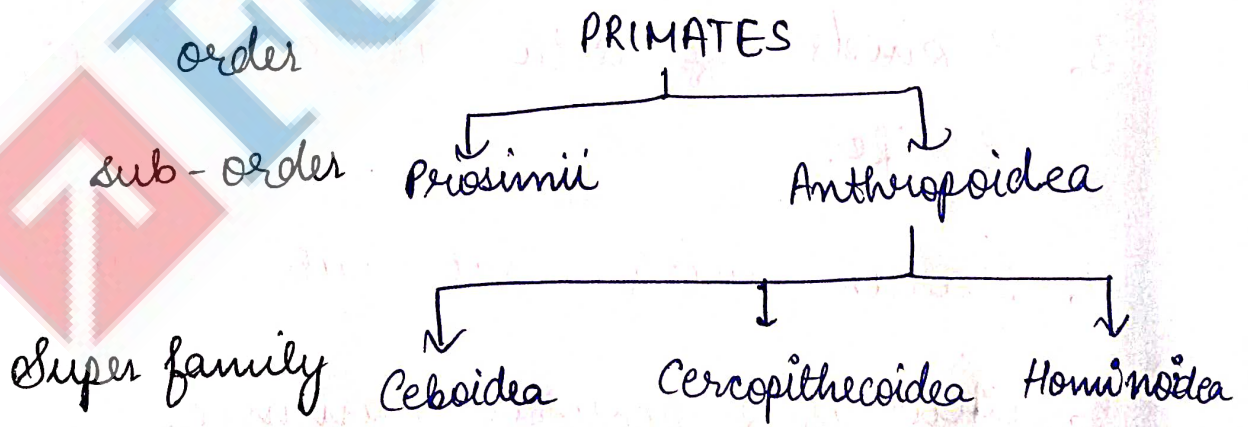 order PRIMATES
sub-order Prosimii Anthropoidea
Super family Ceboidea Cercopithecoidea Hominoidea